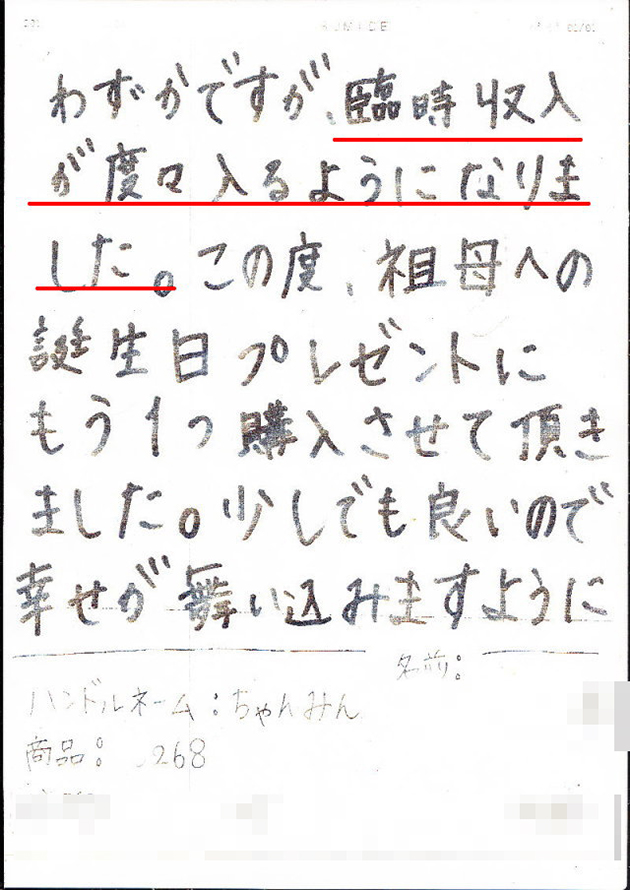 わずかですが、臨時収入
が度々入るようになりま
した。この度、祖母への
誕生日プレゼントに
もう1つ購入させて頂き
ました。少しでも良いので
幸せが舞い込みますように
名前：
ハンドルネーム：ちゃんみん
商品： 268